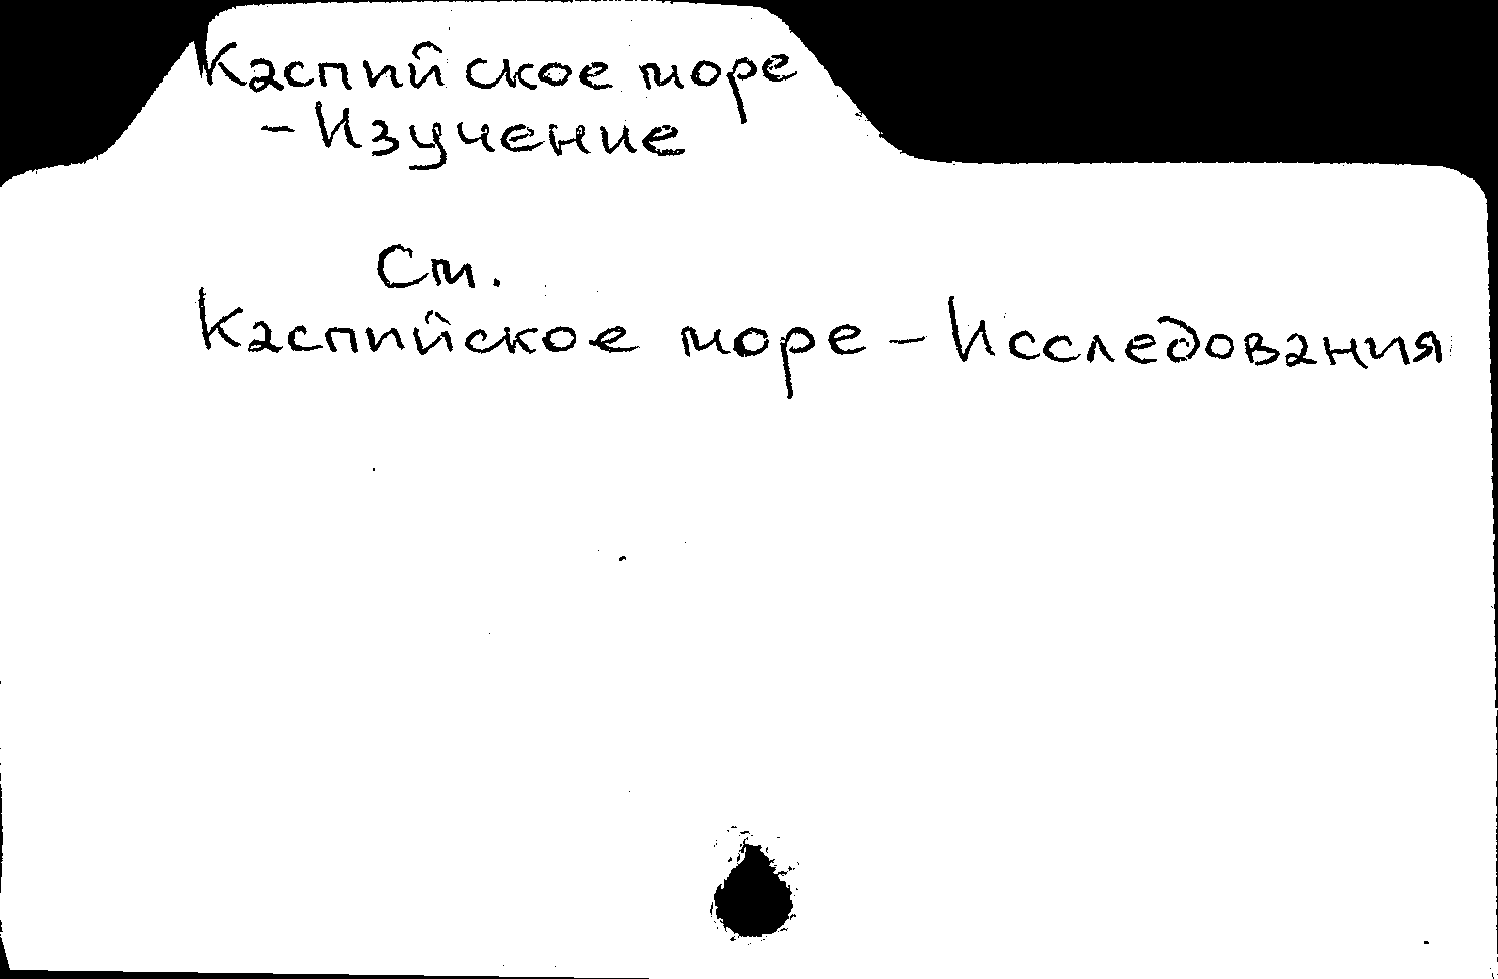 Каспийское море
- Изучение
См.
Каспийское море - Исследования